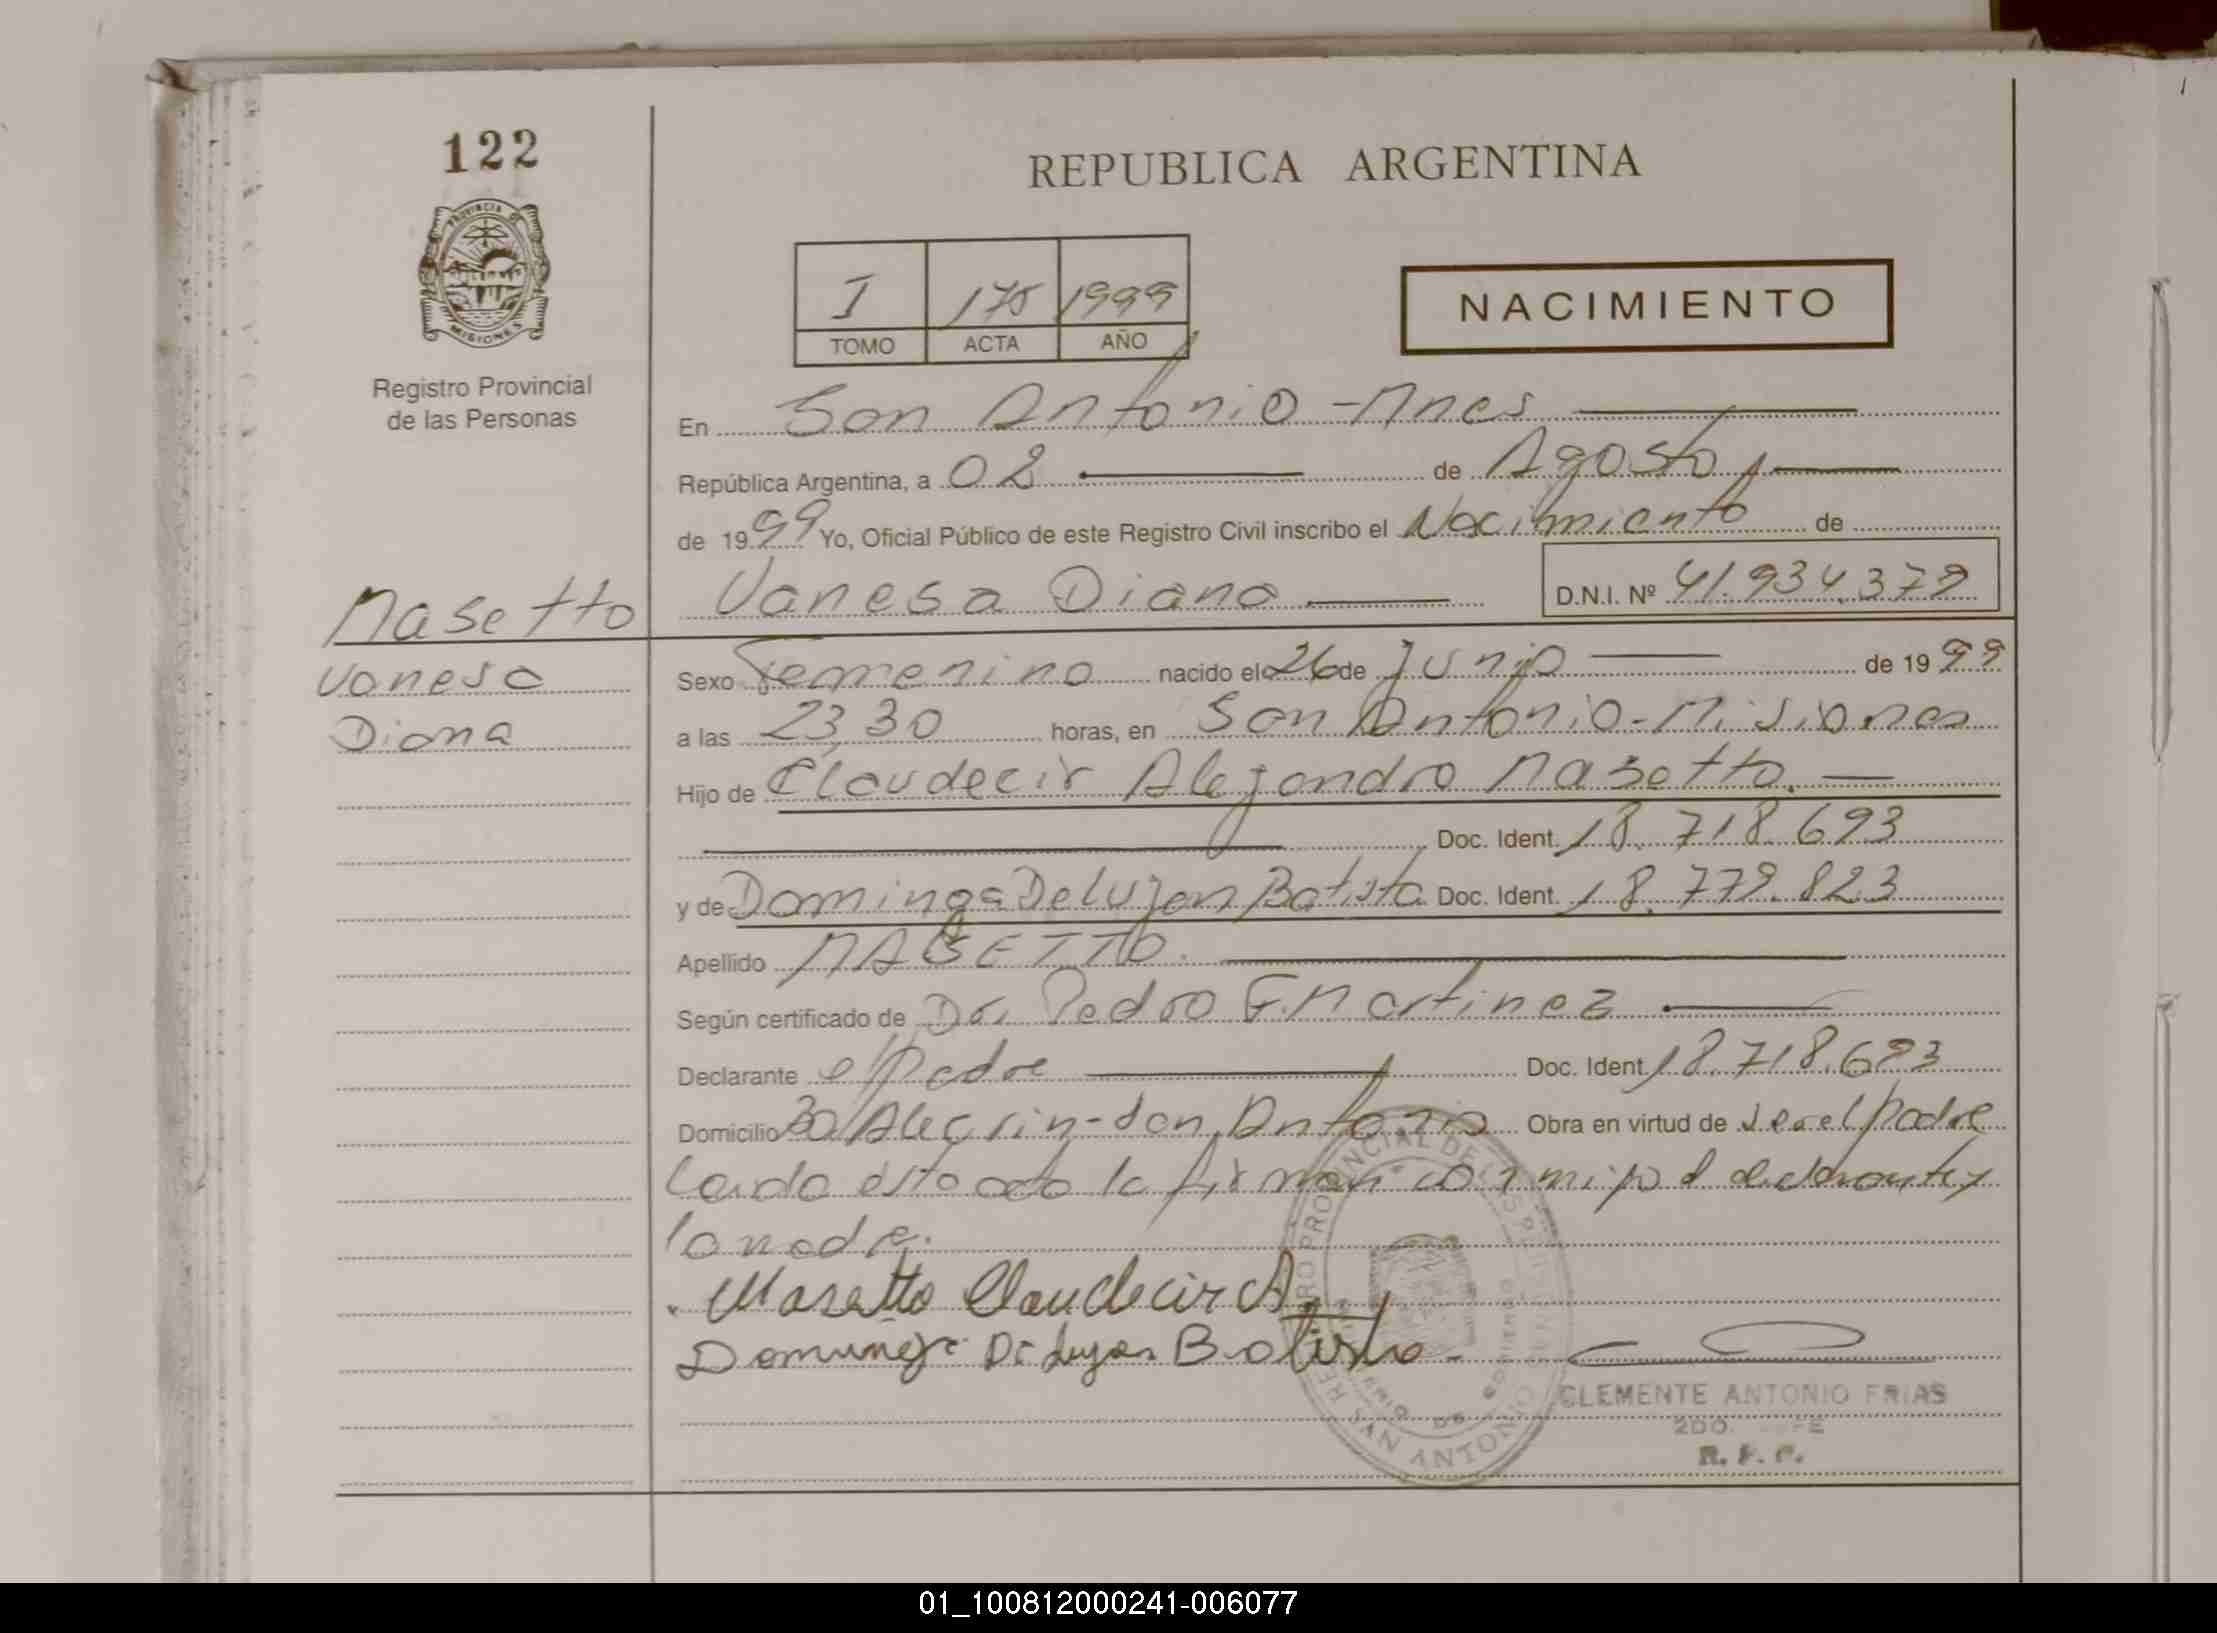 122
PROVINCIA DE
MISIONES
Registro Provincial
de las Personas
REPUBLICA ARGENTINA
I 175 1999
TOMO ACTA AÑO
NACIMIENTO
En San Antonio - Mnes
República Argentina, a 02 de Agosto
de 1999 Yo, Oficial Público de este Registro Civil inscribo el Nacimiento de
Masetto Vanesa Diana D.N.I. Nº 41.934.379
Vanesa Sexo Femenino nacido el 26 de Junio de 1999
Diana a las 23,30 horas, en San Antonio - Misiones
Hijo de Claudecir Alejandro Masetto.
Doc. Ident. 18.718.693
y de Dominga De Lujan Batista Doc. Ident. 18.779.823
Apellido MASETTO.
Según certificado de Dr. Pedro F. Martinez
Declarante el padre Doc. Ident. 18.718.693
Domicilio Bo/Alecrin - San Antonio Obra en virtud de ser el padre
Leida esta acta la firman con migo el declarante y
la madre.
Masetto Claudecir A.
Dominga De Lujan Batista
CLEMENTE ANTONIO FRIAS
2DO.
R. P. P.
01_100812000241-006077